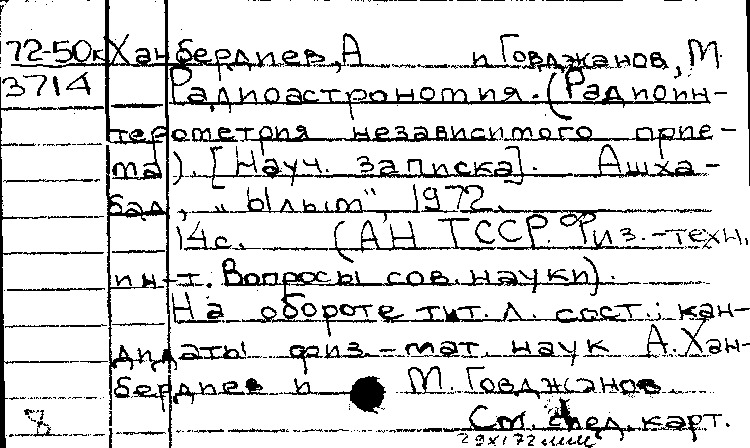 72-50к Ханбердиев, А и Говджанов, М.
3714 Радиоастрономия. (Радиоин-
терометрия независимого прие-
ма). [Науч. записка]. Ашха-
бад, „Ылым", 1972.
14с. (АН ТССР. Физ.-техн.
ин-т. Вопросы сов. науки).
На обороте тит. л. сост.: кан-
дидаты физ.-мат. наук А. Хан-
бердиев и М. Говджанов.
См. след. карт.
8 29х172мм